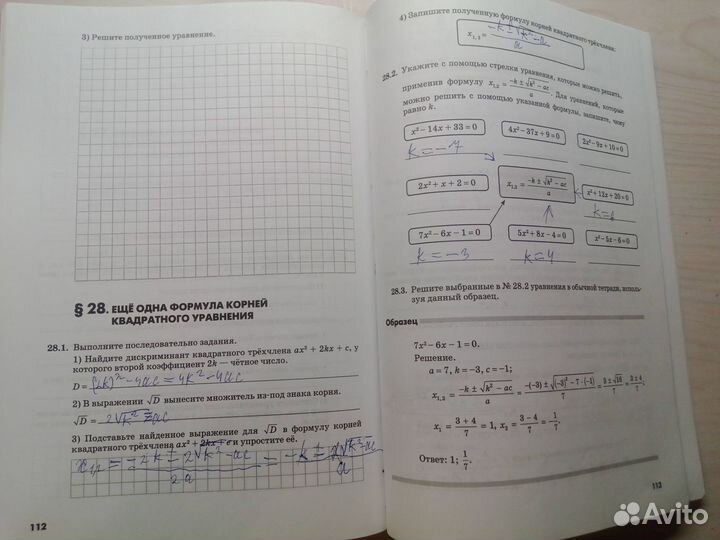 3) Решите полученное уравнение.
§ 28. ЕЩЁ ОДНА ФОРМУЛА КОРНЕЙ
КВАДРАТНОГО УРАВНЕНИЯ
28.1. Выполните последовательно задания.
1) Найдите дискриминант квадратного трёхчлена ax² + 2kx + c, у
которого второй коэффициент 2k — чётное число.
D = (2k)² − 4ac = 4k² − 4ac
2) В выражении √D вынесите множитель из-под знака корня.
√D = 2√k² − ac
3) Подставьте найденное выражение для √D в формулу корней
квадратного трёхчлена ax² + 2kx + c и упростите её.
x₁,₂ = −2k ± 2√k² − ac / 2a = −k ± √k² − ac / a
112
4) Запишите полученную формулу корней квадратного трёхчлена:
x₁,₂ = −k ± √k² − ac / a
28.2. Укажите с помощью стрелки уравнения, которые можно решить,
применив формулу x₁,₂ = −k ± √k² − ac / a. Для уравнений, которые
можно решить с помощью указанной формулы, запишите, чему
равно k.
x² − 14x + 33 = 0
4x² − 37x + 9 = 0
2x² − 9x + 10 = 0
k = −7
2x² + x + 2 = 0
x₁,₂ = −k ± √k² − ac / a
x² + 12x + 20 = 0
k = 6
7x² − 6x − 1 = 0
5x² + 8x − 4 = 0
x² − 5x − 6 = 0
k = −3
k = 4
28.3. Решите выбранные в № 28.2 уравнения в обычной тетради, исполь-
зуя данный образец.
Образец
7x² − 6x − 1 = 0.
Решение.
a = 7, k = −3, c = −1;
x₁,₂ = −k ± √k² − ac / a = −(−3) ± √(−3)² − 7 · (−1) / 7 = 3 ± √16 / 7 = 3 ± 4 / 7;
x₁ = 3 + 4 / 7 = 1, x₂ = 3 − 4 / 7 = 1/7.
Ответ: 1; 1/7.
113
Avito